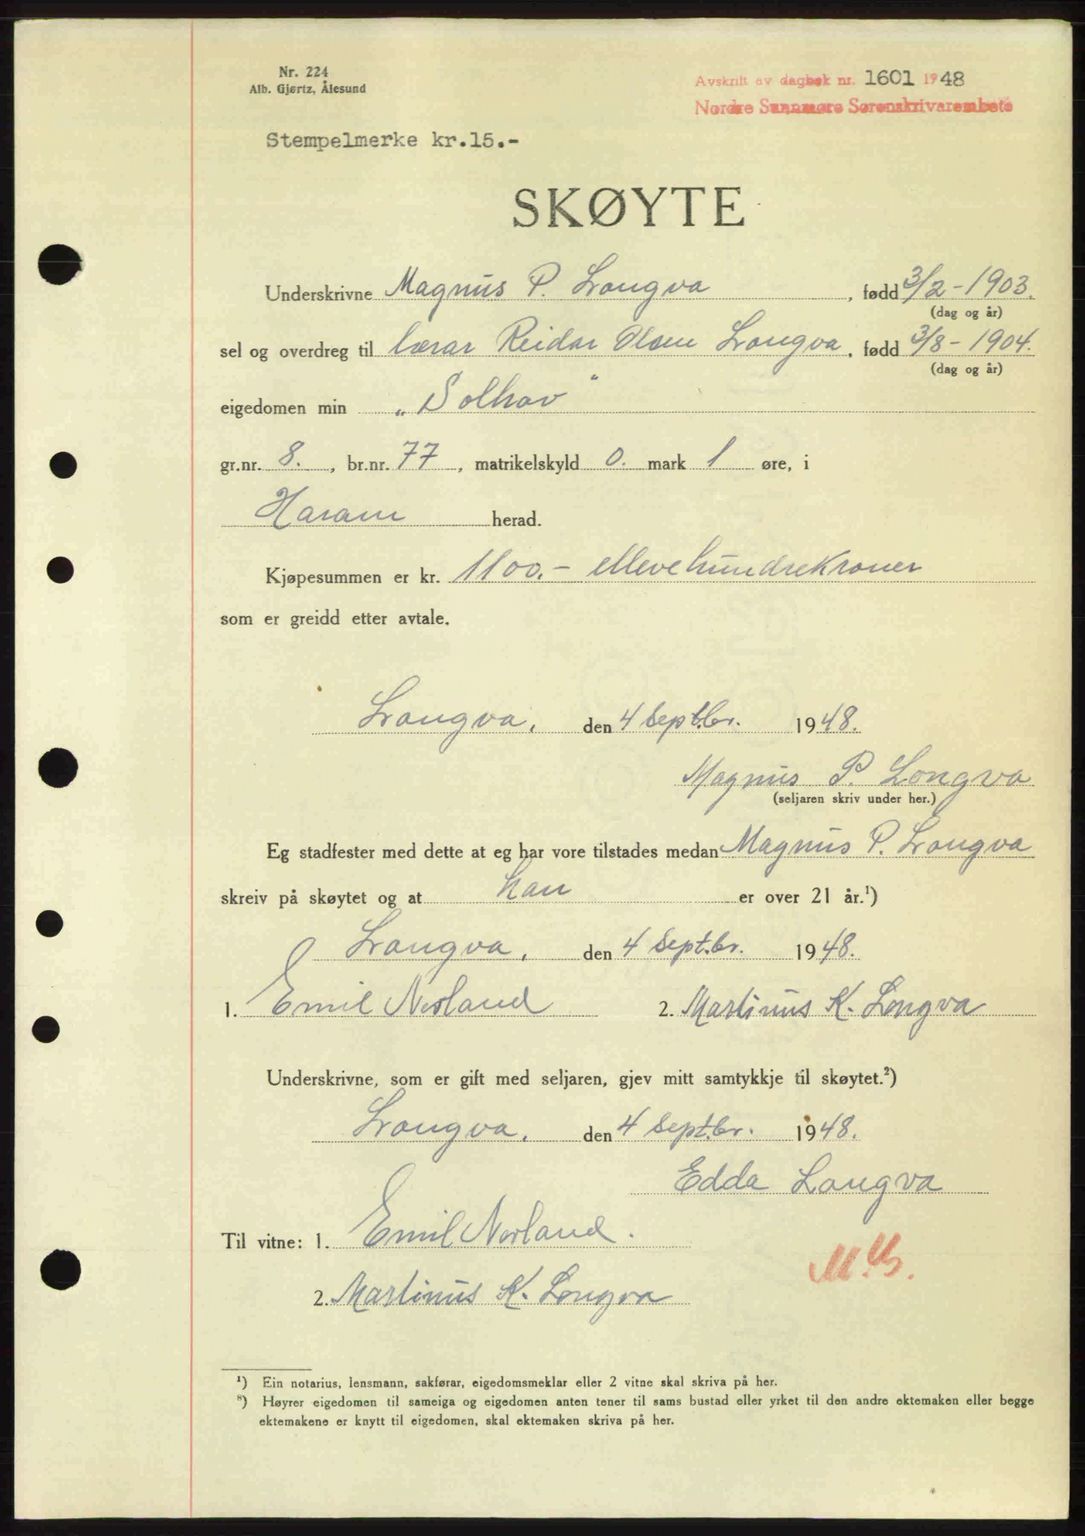 Nr. 224
Alb. Gjørtz, Ålesund
Avskrift av dagbok nr. 1601 1948
Nordre Sunnmøre Sorenskrivarembete
Stempelmerke kr.15.-
SKØYTE
Underskrivne Magnus P. Longva, fødd 3/2-1903.
(dag og år)
sel og overdreg til lærar Reidar Olsen Longva, fødd 3/8-1904.
(dag og år)
eigedomen min „Solhov“
gr.nr. 8., br.nr. 77, matrikelskyld 0. mark 1 øre, i
Haram herad.
Kjøpesummen er kr. 1100.- ellevehundrekroner
som er greidd etter avtale.
Longva, den 4 Septbr. 1948.
Magnus P. Longva
(seljaren skriv under her.)
Eg stadfester med dette at eg har vore tilstades medan Magnus P. Longva
skreiv på skøytet og at han er over 21 år.¹)
Longva, den 4 Septbr. 1948.
1. Emil Norland 2. Martinus K. Longva
Underskrivne, som er gift med seljaren, gjev mitt samtykkje til skøytet.²)
Longva, den 4 Septbr. 1948.
Edda Longva
Til vitne: 1. Emil Norland.
2. Martinus K. Longva
¹) Ein notarius, lensmann, sakførar, eigedomsmeklar eller 2 vitne skal skriva på her.
²) Høyrer eigedomen til sameiga og eigedomen anten tener til sams bustad eller yrket til den andre ektemaken eller begge
ektemakene er knytt til eigedomen, skal ektemaken skriva på her.